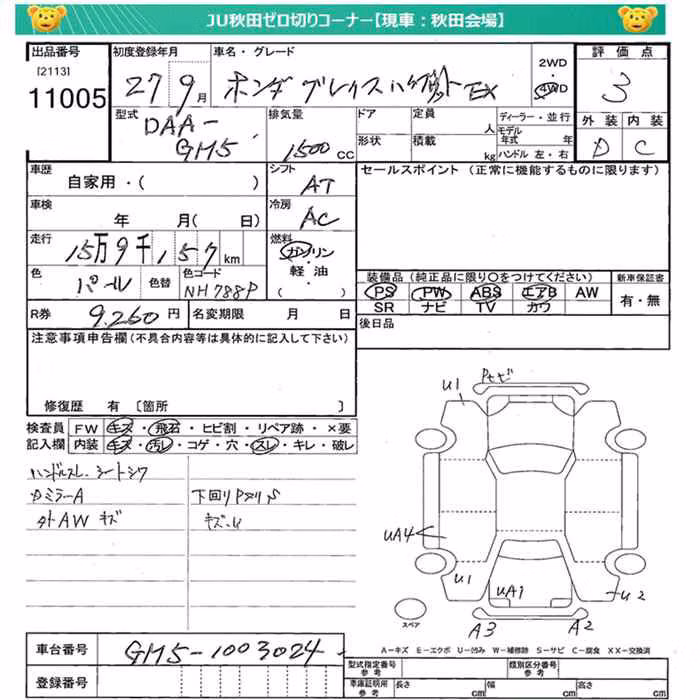 JU秋田ゼロ切りコーナー【現車：秋田会場】
出品番号 初度登録年月 車名・グレード 2WD 評価点
[2113] 11005 27 9月 ホンダ グレイス ハイブリット EX 4WD 3
型式 DAA-GM5 排気量 1500 CC ドア 定員 人 ディーラー・並行 外装 内装
形状 積載 kg モデル年式 年 ハンドル 左・右 D C
車歴 シフト セールスポイント (正常に機能するものに限ります)
自家用・( ) AT
車検 冷房
年 月( 日) AC
走行 15万9千157 km 燃料 ガソリン・軽油・( )
色 パール 色替 色コード NH788P 装備品 (純正品に限り○をつけてください) 新車保証書
PS PW ABS エアB AW 有・無
SR ナビ TV カワ
R券 9,260 円 名変期限 月 日 後日品
注意事項申告欄(不具合内容等は具体的に記入して下さい)
修復歴 有 〔箇所 〕
検査員 FW キズ・飛石・ヒビ割・リペア跡・×要
記入欄 内装 キズ・汚レ・コゲ・穴・スレ・キレ・破レ
ハンドルスレ シートシワ
カミラーA 下回りPヌリS
外AW キズ キズ・U
U1 Pセビ
UA4
U1 UA1 U2
スペア A3 A2
A－キズ E－エクボ U－凹み W－補修跡 S－サビ C－腐食 XX－交換済
車台番号 GM5-1003024
登録番号
型式指定番号 参考 類別区分番号 参考
車庫証明用 参考 長さ cm 幅 cm 高さ cm